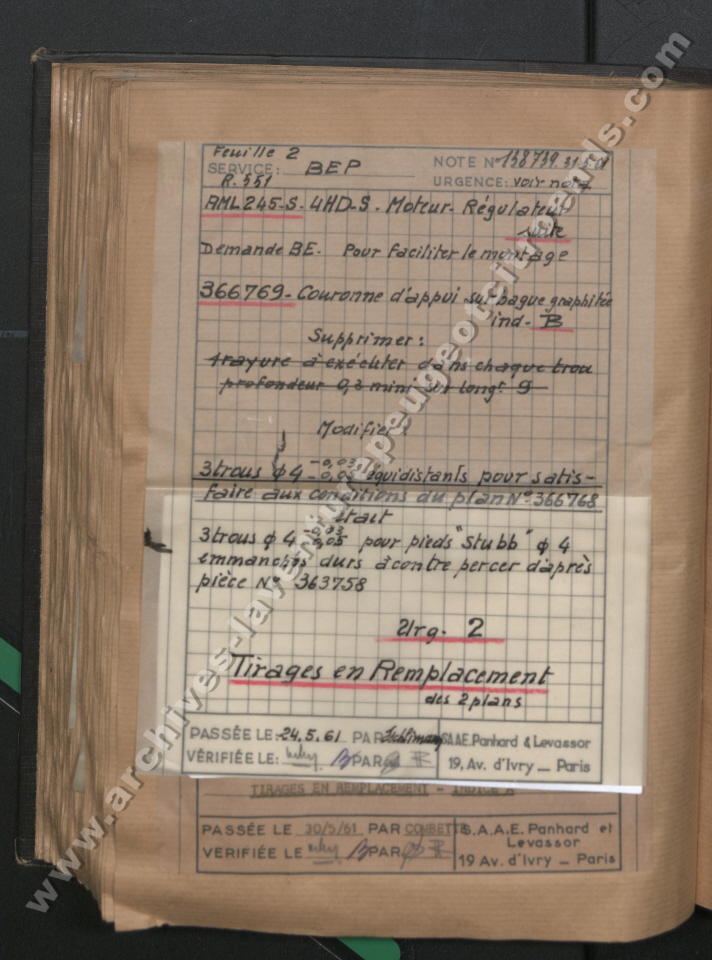 Feuille 2
SERVICE: BEP
NOTE N° 138739. 31.5.61
R.551
URGENCE: voir note
AML 245-S. 4HD-S. Moteur. Régulateur
suite
Demande BE. Pour faciliter le montage
366769 - Couronne d'appui sur bague graphitée
ind. B
Supprimer:
trayure à exécuter dans chaque trou
profondeur 0,3 mini sur longr 9
Modifier:
3 trous φ 4 -0,03 -0,05 équidistants pour satis-
faire aux conditions du plan N° 366768
était
3 trous φ 4 -0,03 -0,05 pour pieds "Stubb" φ 4
emmanchés durs à contre percer d'après
pièce N° 363758
Urg. 2
Tirages en Remplacement
des 2 plans
PASSÉE LE: 24.5.61 PAR
S.A.A.E. Panhard & Levassor
VÉRIFIÉE LE: PAR
19, Av. d'Ivry _ Paris
TIRAGES EN REMPLACEMENT - INDICE A
PASSÉE LE 30/5/61 PAR COMBETTE
S.A.A.E. Panhard et
Levassor
VERIFIÉE LE PAR
19 Av. d'Ivry _ Paris
www.archives-laventurepeugeotcitroends.com